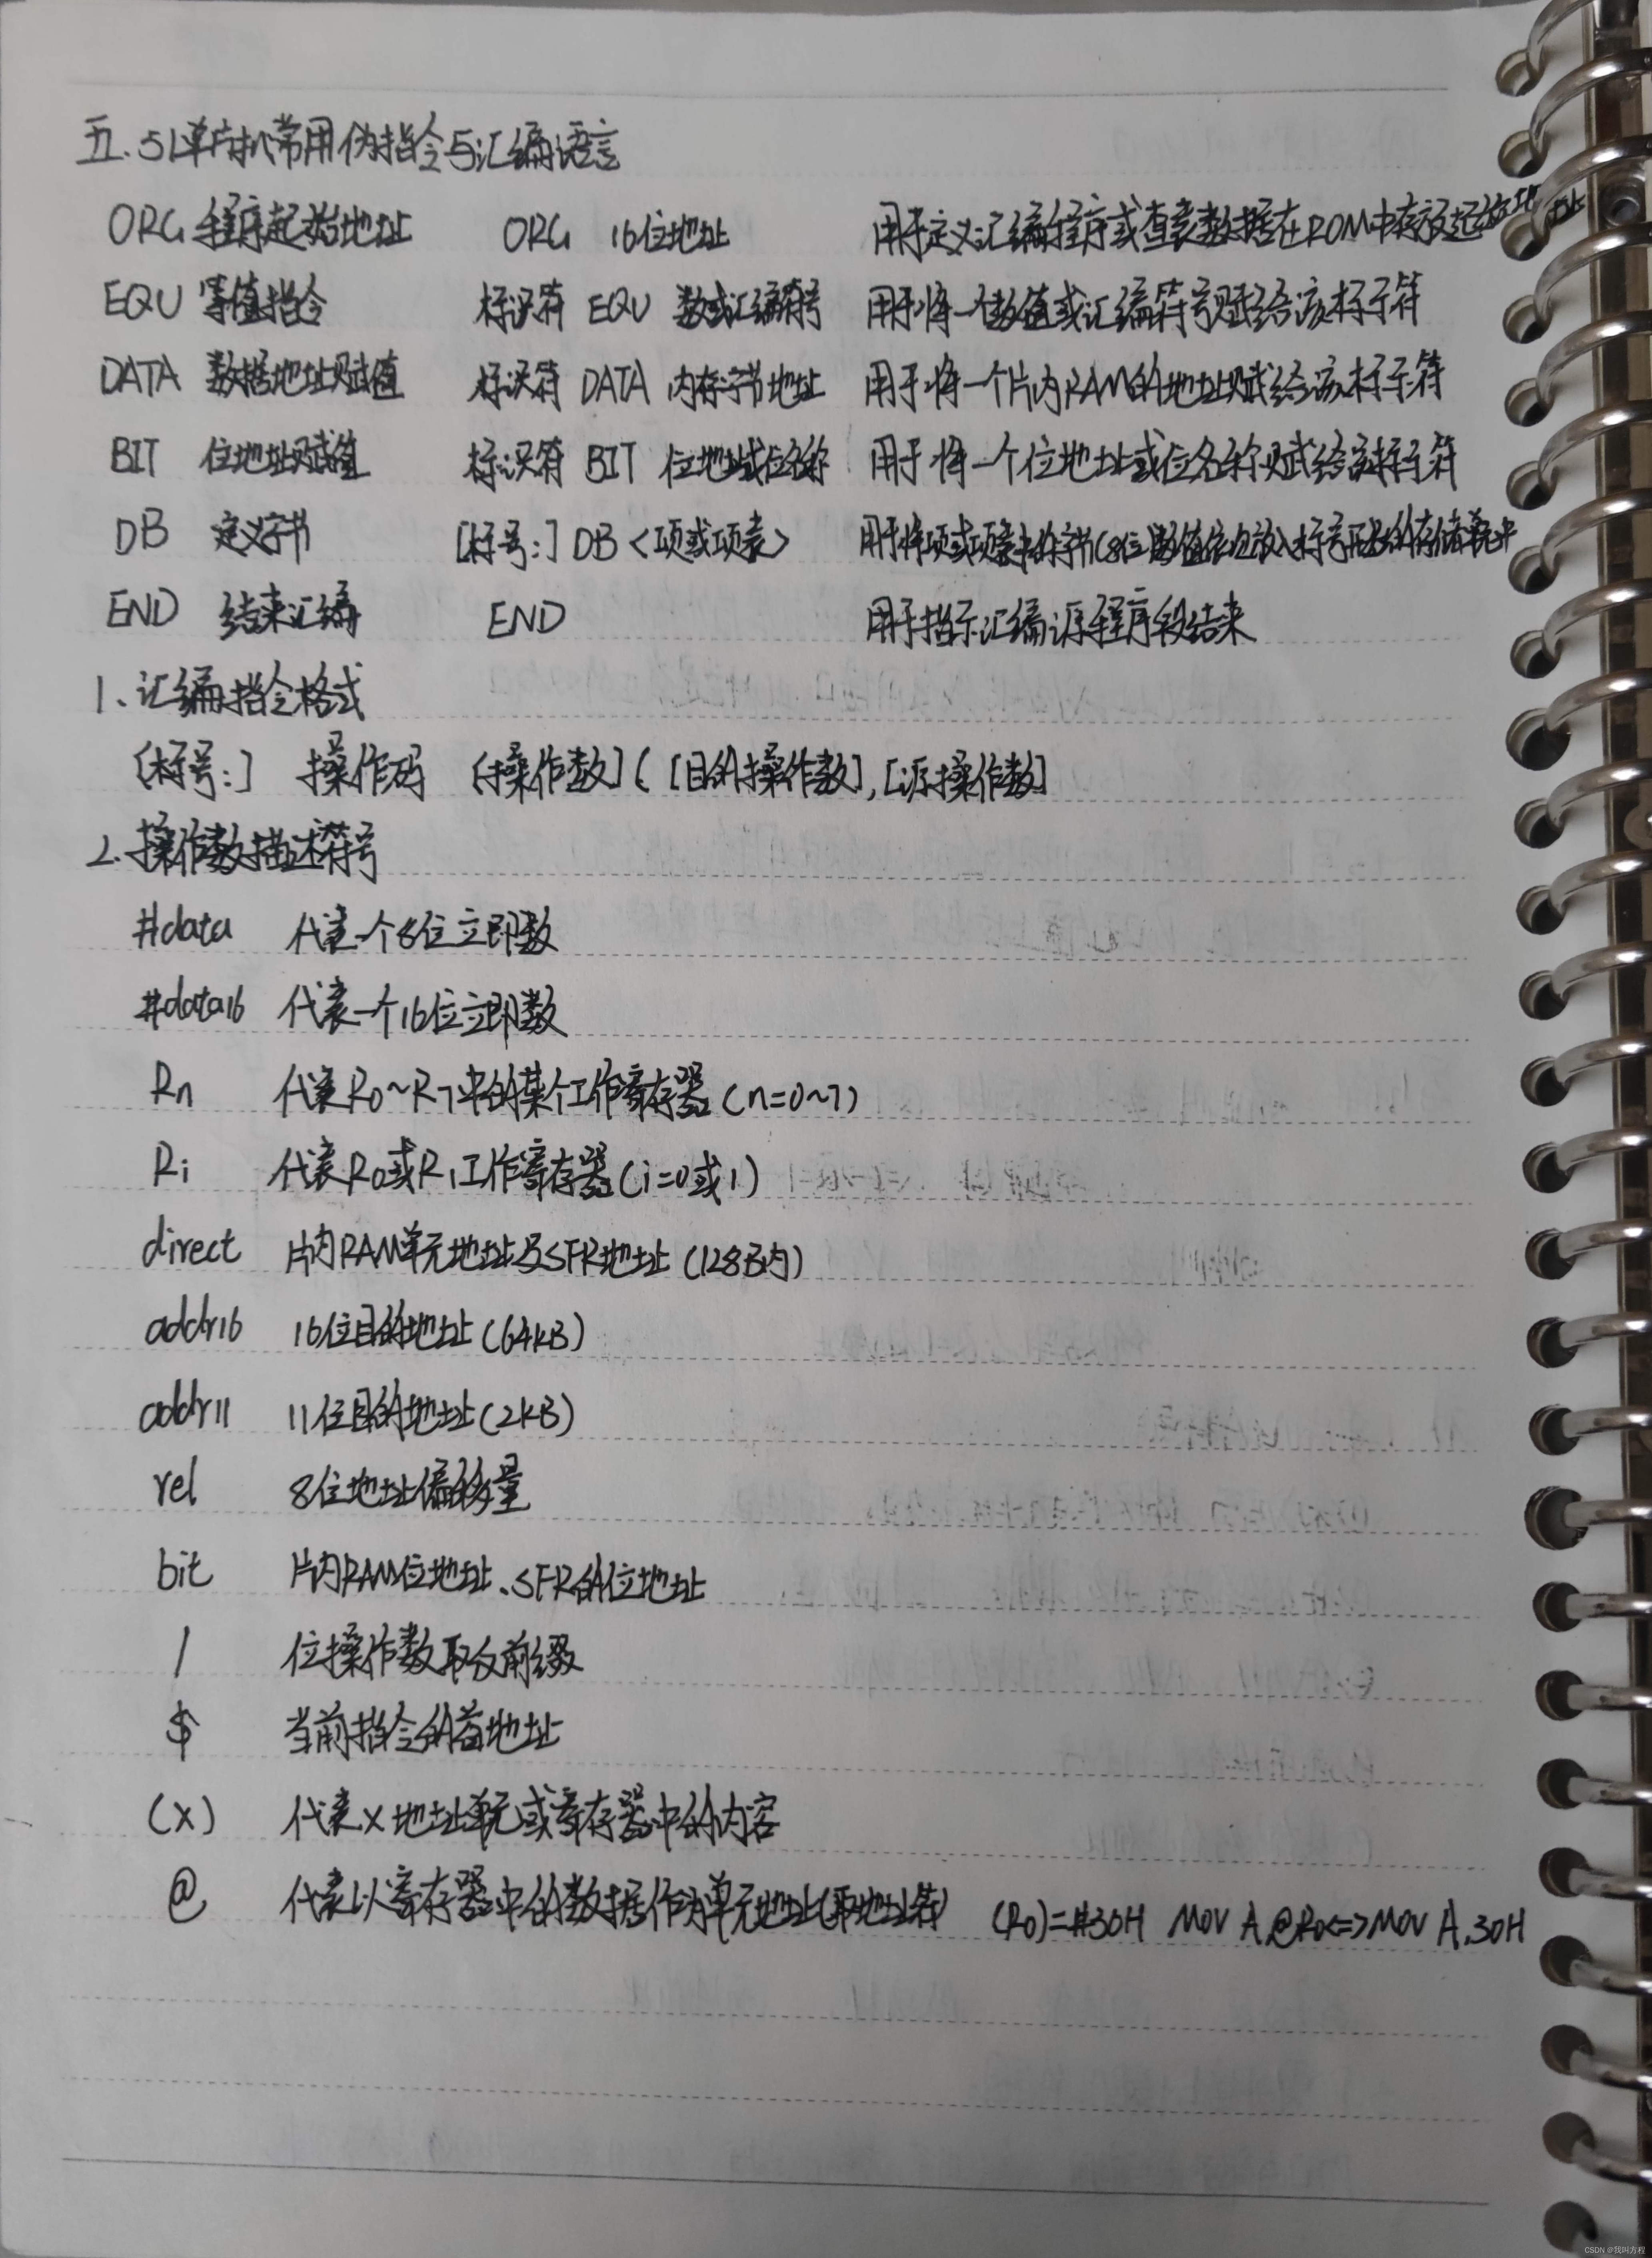 五.51单片机常用伪指令与汇编语言
ORG 程序起始地址 ORG 16位地址 用于定义汇编程序或查表数据在ROM中存放起始地址
EQU 等值指令 标识符 EQU 数或汇编符号 用于将一个数值或汇编符号赋给该标示符
DATA 数据地址赋值 标识符 DATA 内存字节地址 用于将一个片内RAM的地址赋给该标示符
BIT 位地址赋值 标识符 BIT 位地址或位名称 用于将一个位地址或位名称赋给该标示符
DB 定义字节 [标号:] DB <项或项表> 用于将项或项表中的字节(8位)数值依次放入标号开始的存储单元中
END 结束汇编 END 用于指示汇编源程序段结束
1、汇编指令格式
[标号:] 操作码 [操作数]([目的操作数],[源操作数]
2.操作数描述符号
#data 代表一个8位立即数
#data16 代表一个16位立即数
Rn 代表R0~R7中的某个工作寄存器(n=0~7)
Ri 代表R0或R1工作寄存器(i=0或1)
direct 片内RAM单元地址及SFR地址(128B内)
addr16 16位目的地址(64kB)
addr11 11位目的地址(2kB)
rel 8位地址偏移量
bit 片内RAM位地址、SFR的位地址
/ 位操作数取反前缀
$ 当前指令的首地址
(X) 代表X地址单元或寄存器中的内容
@ 代表以寄存器中的数据作为单元地址(取地址符) (R0)=#30H MOV A,@R0<=>MOV A,30H
CSDN @我叫方程